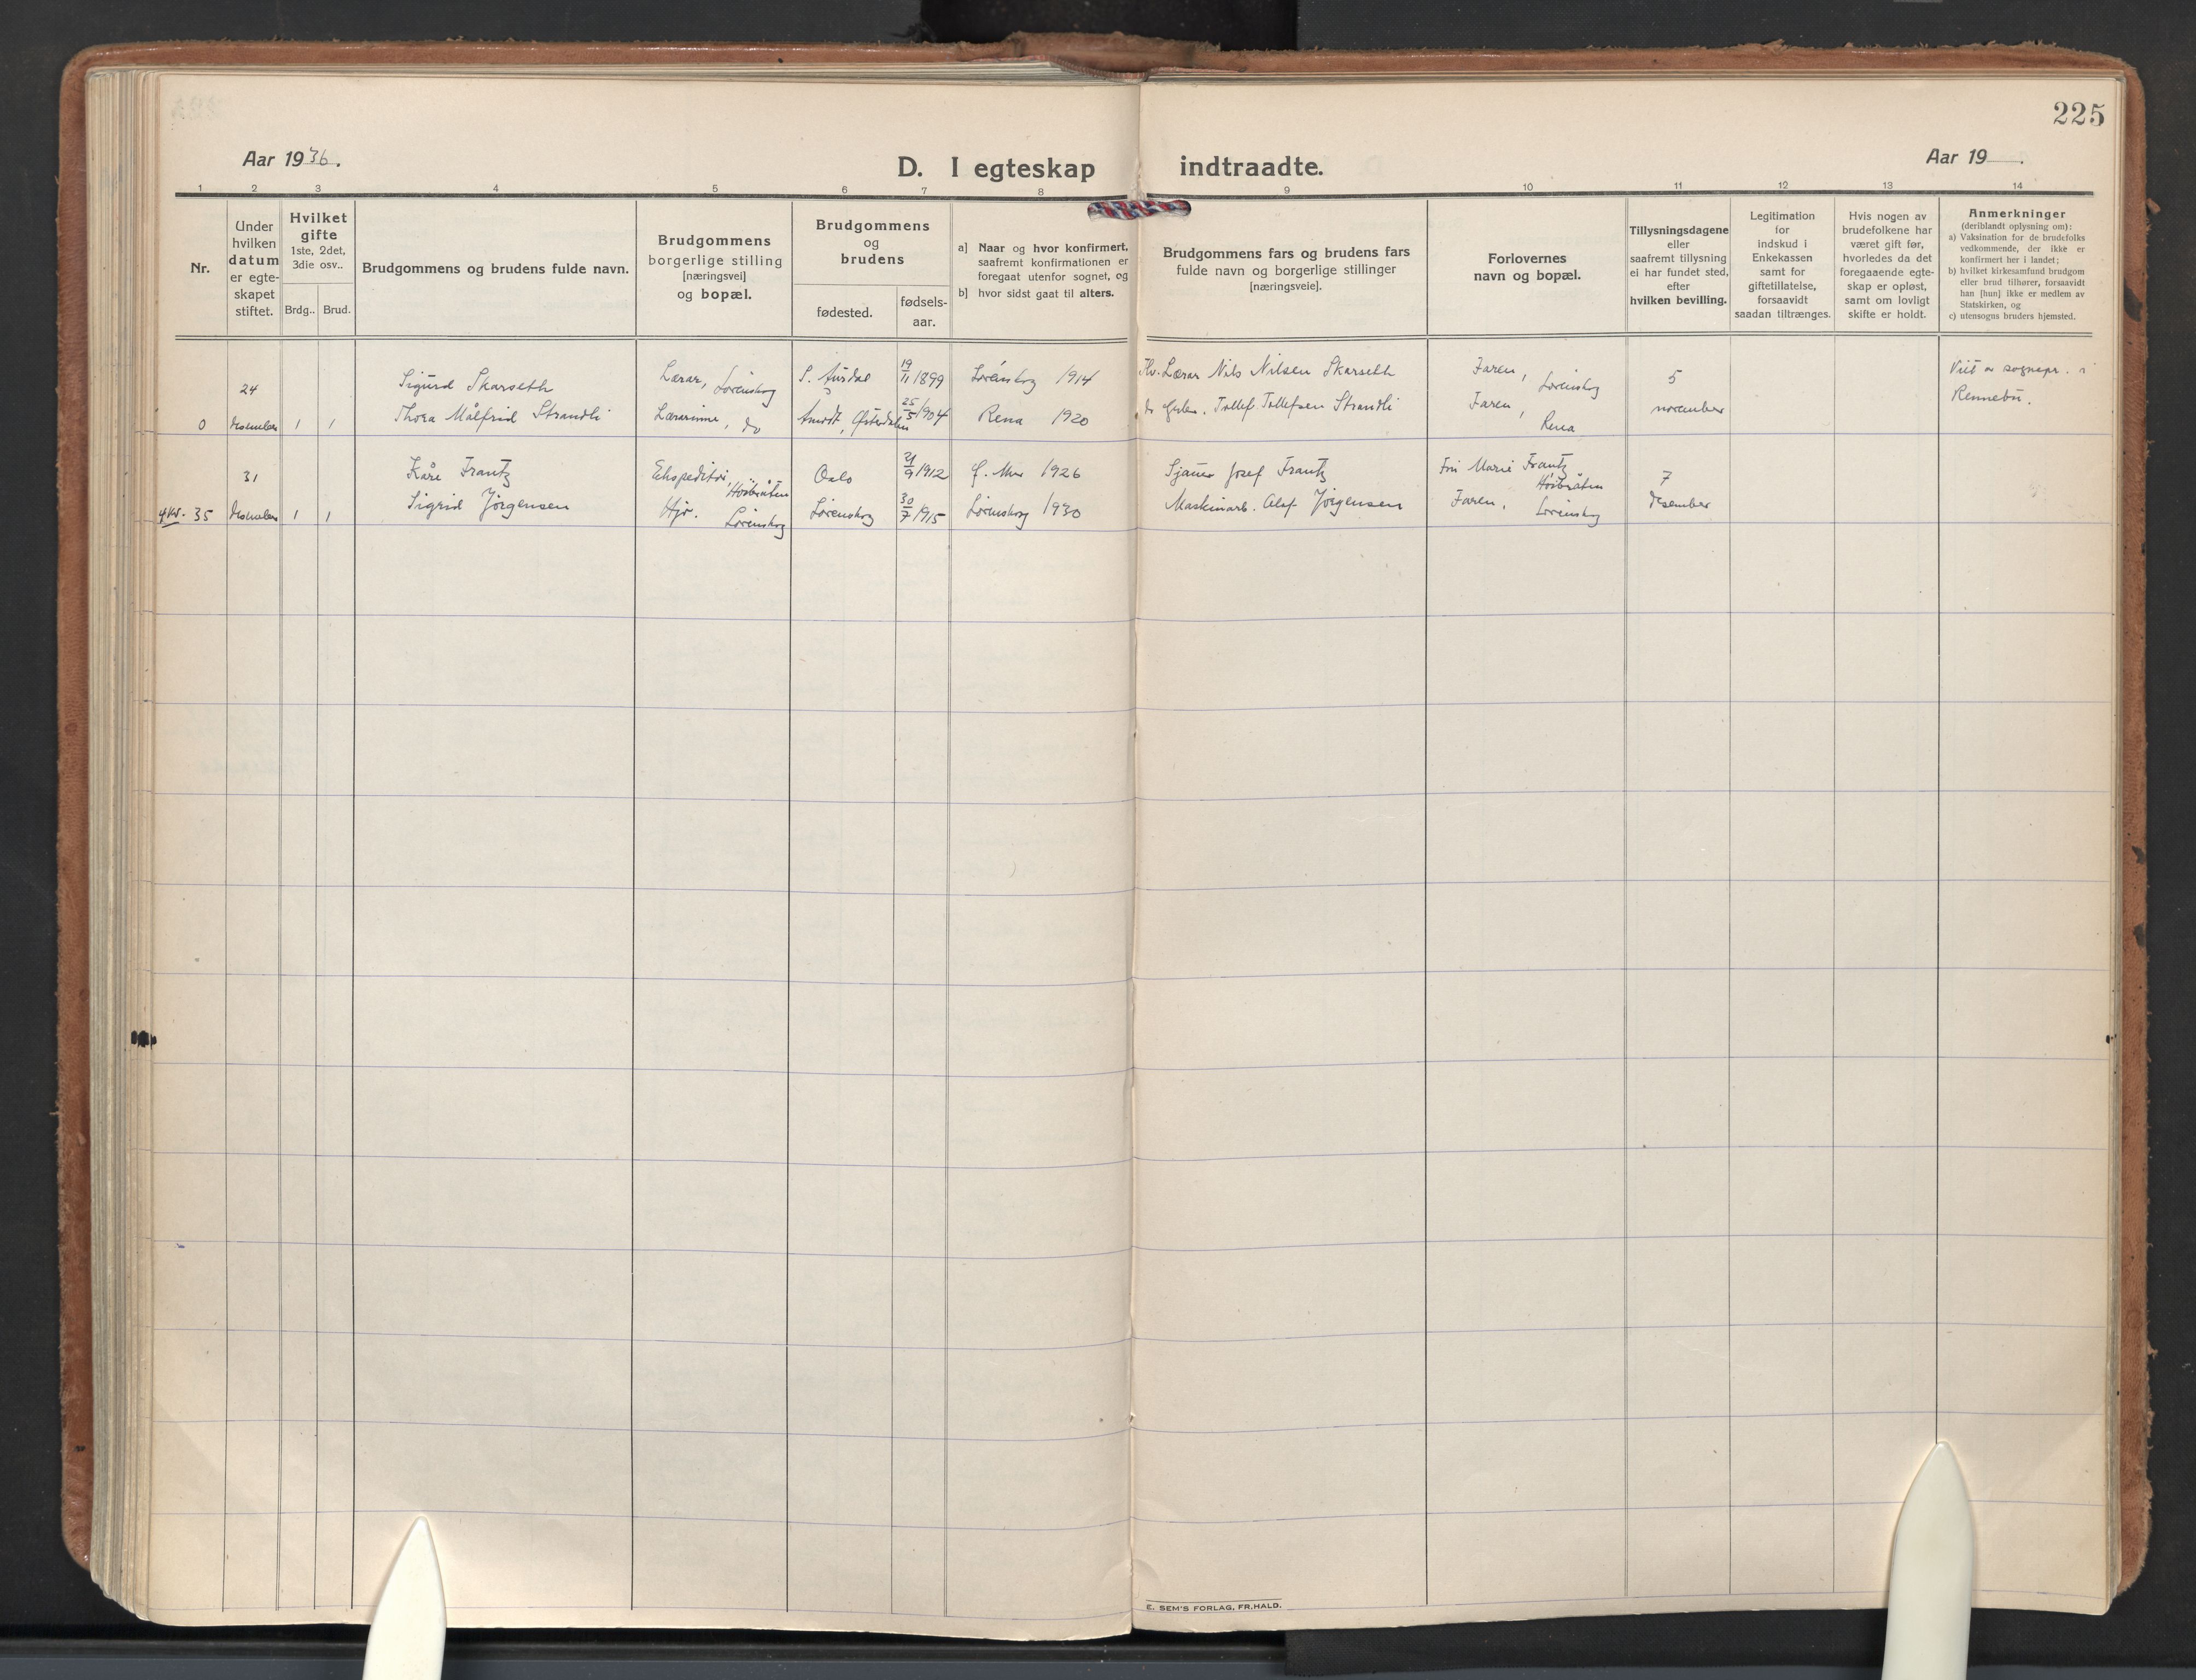 225
Aar 1936.
D. I egteskap indtraadte.
Aar 19 .
1 2 3 4 5 6 7 8 9 10 11 12 13 14
Nr.
Under
hvilken
datum
er egte-
skapet
stiftet.
Hvilket
gifte
1ste, 2det,
3die osv..
Brdg.. Brud.
Brudgommens og brudens fulde navn.
Brudgommens
borgerlige stilling
[næringsvei]
og bopæl.
Brudgommens
og
brudens
fødested.
fødsels-
aar.
a] Naar og hvor konfirmert,
saafremt konfirmationen er
foregaat utenfor sognet, og
b] hvor sidst gaat til alters.
Brudgommens fars og brudens fars
fulde navn og borgerlige stillinger
[næringsveie].
Forlovernes
navn og bopæl.
Tillysningsdagene
eller
saafremt tillysning
ei har fundet sted,
efter
hvilken bevilling.
Legitimation
for
indskud i
Enkekassen
samt for
giftetillatelse,
forsaavidt
saadan tiltrænges.
Hvis nogen av
brudefolkene har
været gift før,
hvorledes da det
foregaaende egte-
skap er opløst,
samt om lovligt
skifte er holdt.
Anmerkninger
(deriblandt oplysning om):
a) Vaksination for de brudefolks
vedkommende, der ikke er
konfirmert her i landet;
b) hvilket kirkesamfund brudgom
eller brud tilhører, forsaavidt
han [hun] ikke er medlem av
Statskirken, og
c) utensogns bruders hjemsted.
24 Sigurd Skarseth Lærar, Lørenskog S. Aurdal 19/11 1899 Lørenskog 1914 Lærar Nils Nilsen Skarseth Faren, Lørenskog 5 Viet av sognepr. i
0 desember 1 1 Thora Målfrid Strandli Lærarinne, do Åmodt, Østerdalen 25/5 1904 Rena 1920 Tollef Tollefsen Strandli Faren, Rena november Rennebu.
31 Kåre Frantz Ekspeditør, Høibråten Oslo 21/9 1912 1926 Sjauer Josef Frantz Fru Marie Frantz Høibråten 7
4 kv. 35 desember 1 1 Sigrid Jørgensen Hjv. Lørenskog Lørenskog 30/7 1915 Lørenskog 1930 Maskinarb. Olaf Jørgensen Faren, Lørenskog desember
E. SEM'S FORLAG, FR.HALD.